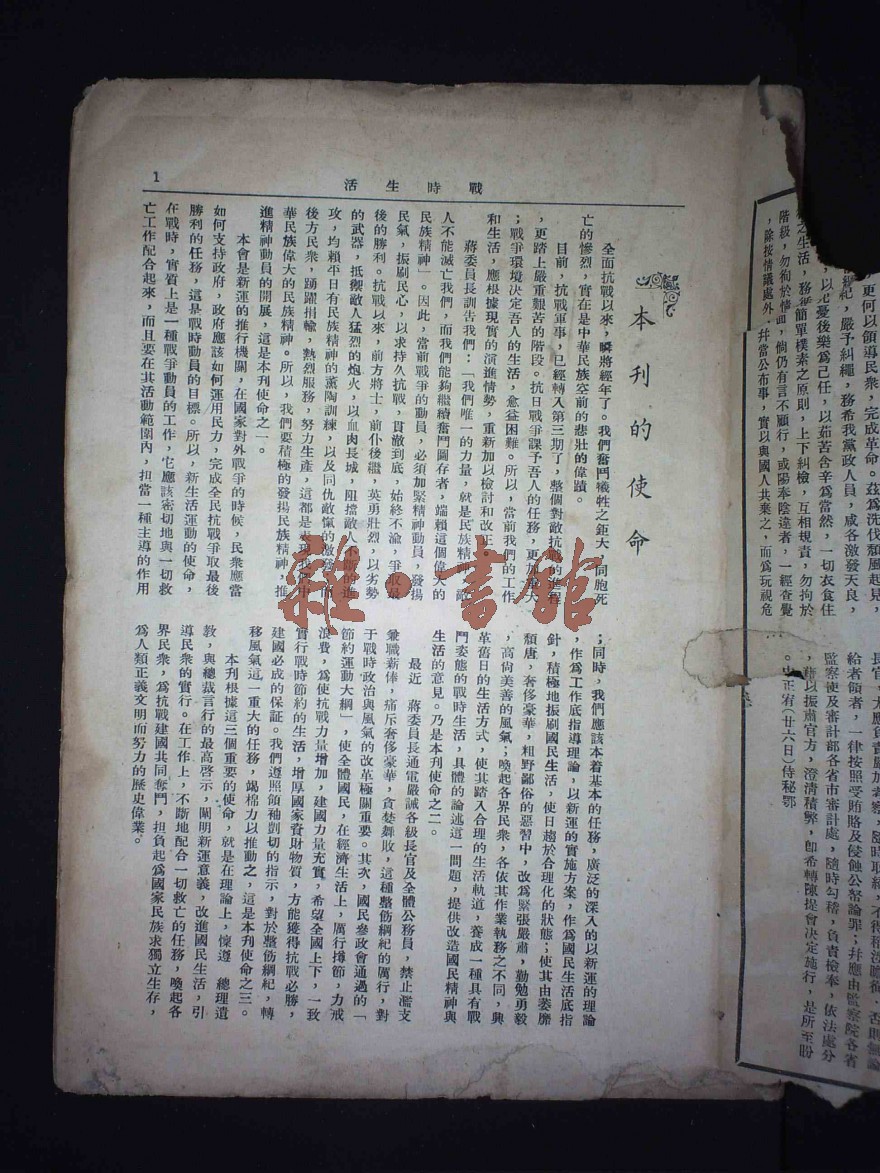 更何以領導民衆，完成革命。茲爲洗伐頹風起見，
紀，嚴予糾繩，務希我黨政人員，咸各激發天良，
，以先憂後樂爲己任，以茹苦含辛爲當然，一切衣食住
之生活，務簡單樸素之原則，上下糾檢，互相規責，勿拘於
階級，勿徇於情面，倘仍有言不顧行，或陽奉陰違者，一經查覺
，除按情議處外，幷當公布事，實以與國人共棄之，而爲玩視危
長官，尤應負責嚴加考察，隨時取締，不得稍涉瞻徇，否則無論
給者領者，一律按照受賄賂及侵蝕公帑論罪；幷應由監察院各省
監察使及審計部各省市審計處，隨時勾稽，負責檢奉，依法處分
，藉以振肅官方，澄清積弊，卽希轉陳提會決定施行，是所至盼
。中正宥（廿六日）侍秘鄂
戰時生活
1
本刊的使命
全面抗戰以來，瞬將經年了。我們奮鬥犧牲之鉅大，同胞死
亡的慘烈，實在是中華民族空前的悲壯的偉蹟。
目前，抗戰軍事，已經轉入第三期了，整個對敵抗戰的進程
，更踏上嚴重艱苦的階段。抗日戰爭課予吾人的任務，更加重大
；戰爭環境決定吾人的生活，愈益困難。所以，當前我們的工作
和生活，應根據現實的演進情勢，重新加以檢討和改正。
蔣委員長訓吿我們：「我們唯一的力量，就是民族精神，敵
人不能滅亡我們，而我們能夠繼續奮鬥圖存者，端賴這個偉大的
民族精神」。因此，當前戰爭的動員，必須加緊精神動員，發揚
民氣，振刷民心，以求持久抗戰，貫徹到底，始終不渝，爭取最
後的勝利。抗戰以來，前方將士，前仆後繼，英勇壯烈，以劣勢
的武器，抵禦敵人猛烈的炮火，以血肉長城，阻擋敵人不斷的進
攻，均賴平日有民族精神的薰陶訓練，以及同仇敵愾的激發；而
後方民衆，踴躍捐輸，熱烈服務，努力生產，這都是表現我們中
華民族偉大的民族精神。所以，我們要積極的發揚民族精神，推
進精神動員的開展，這是本刊使命之一。
本會是新運的推行機關，在國家對外戰爭的時候，民衆應當
如何支持政府，政府應該如何運用民力，完成全民抗戰爭取最後
勝利的任務，這是戰時動員的目標。所以，新生活運動的使命，
在戰時，實質上是一種戰爭動員的工作，它應該密切地與一切救
亡工作配合起來，而且要在其活動範圍內，担當一種主導的作用
；同時，我們應該本着基本的任務，廣泛的深入的以新運的理論
，作爲工作底指導理論，以新運的實施方案，作爲國民生活底指
針，積極地振刷國民生活，使日趨於合理化的狀態；使其由萎靡
頹唐，奢侈豪華，粗野鄙俗的惡習中，改爲緊張嚴肅，勤勉勇毅
，高尙美善的風氣；喚起各界民衆，各依其作業執務之不同，與
革舊日的生活方式，使其踏入合理的生活軌道，養成一種具有戰
鬥姿態的戰時生活，具體的論述這一問題，提供改造國民精神與
生活的意見。乃是本刊使命之二。
最近　蔣委員長通電嚴誡各級長官及全體公務員，禁止濫支
兼職薪俸，痛斥奢侈豪華，貪婪舞敗，這種整飭綱紀的厲行，對
于戰時政治與風氣的改革極關重要。其次，國民參政會通過的「
節約運動大綱」，使全體國民，在經濟生活上，厲行撙節，力戒
浪費，爲使抗戰力量增加，建國力量充實，希望全國上下，一致
實行戰時節約的生活，增厚國家資財物質，方能獲得抗戰必勝，
建國必成的保証。我們遵照領袖剴切的指示，對於整飭綱紀，轉
移風氣這一重大的任務，竭棉力以推動之，這是本刊使命之三。
本刊根據這三個重要的使命，就是在理論上，懍遵　總理遺
敎，與總裁言行的最高啓示，闡明新運意義，改進國民生活，引
導民衆的實行。在工作上，不斷地配合一切救亡的任務，喚起各
界民衆，爲抗戰建國共同奪鬥，担負起爲國家民族求獨立生存，
爲人類正義文明而努力的歷史偉業。
雜·書館